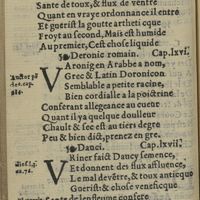 Sante de toux, & flux de ventre
Quant en vraye ordonnance il entre
Et guerist la goutte arthetique
Froyt au second, Mais est humide
Au premier, Cest chose liquide
De Doronic romain. Cap. lxvi.
VAronigen Arabbe a nom,
Grec & Latin Doronicon
Semblable a petite racine,
Bien cordialle a la poictrine.
Conferant allegeance au cueur
Quant il y a quelque douleur
Chault & sec est au tiers degre
Peu & bien dict, prenez en gre.
De Dauci. Cap. lxvii.
VRiner faict Daucy semence,
Et donnent des flux affluence,
Le mal devētre, & toux anticque
Guerist: & chose venericque